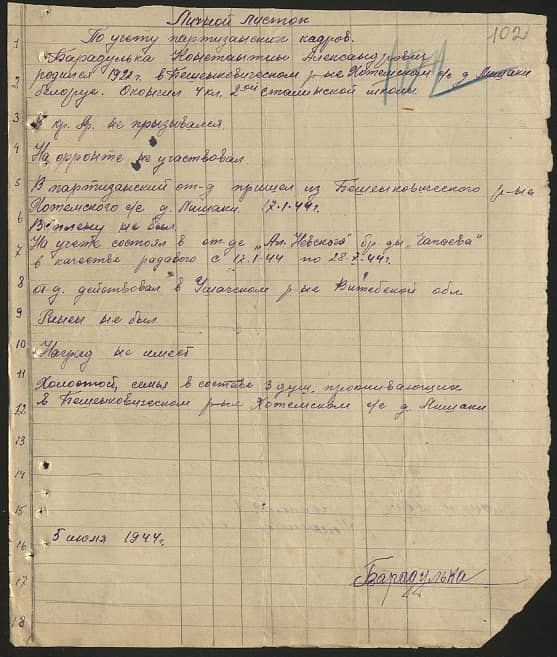 Личной листок
По учету партизанских кадров.
102
1
Барадулька Константин Александрович
родился 1921 г. в Бешенковическом р-не Хотемском с/с д. Мишаки
2
белорус. Окончил 4 кл. 2ой сталинской школы
3
В кр. Ар. не прызывался
4
На фрронте не участвовал
5
В партизанский от-д пришел из Бешенковического р-на
Хотемского с/с д. Мишаки. 12.1.44 г.
6
В плену не был.
На учете состоял в от-де "Ал. Невского" бр. им "Чапаева"
7
в качестве радавого с 12.1.44 по
8
от-д. действовал в Ушачском р-не Витебской обл.
9
Ранен не был
10
Наград не имеет
11
Холостой, семья в составе 3 душ, проживающих
12
в Бешенковическом р-не Хотемском с/с д. Мишаки
13
14
15
5 июля 1944 г.
16
Барадулька
17
18